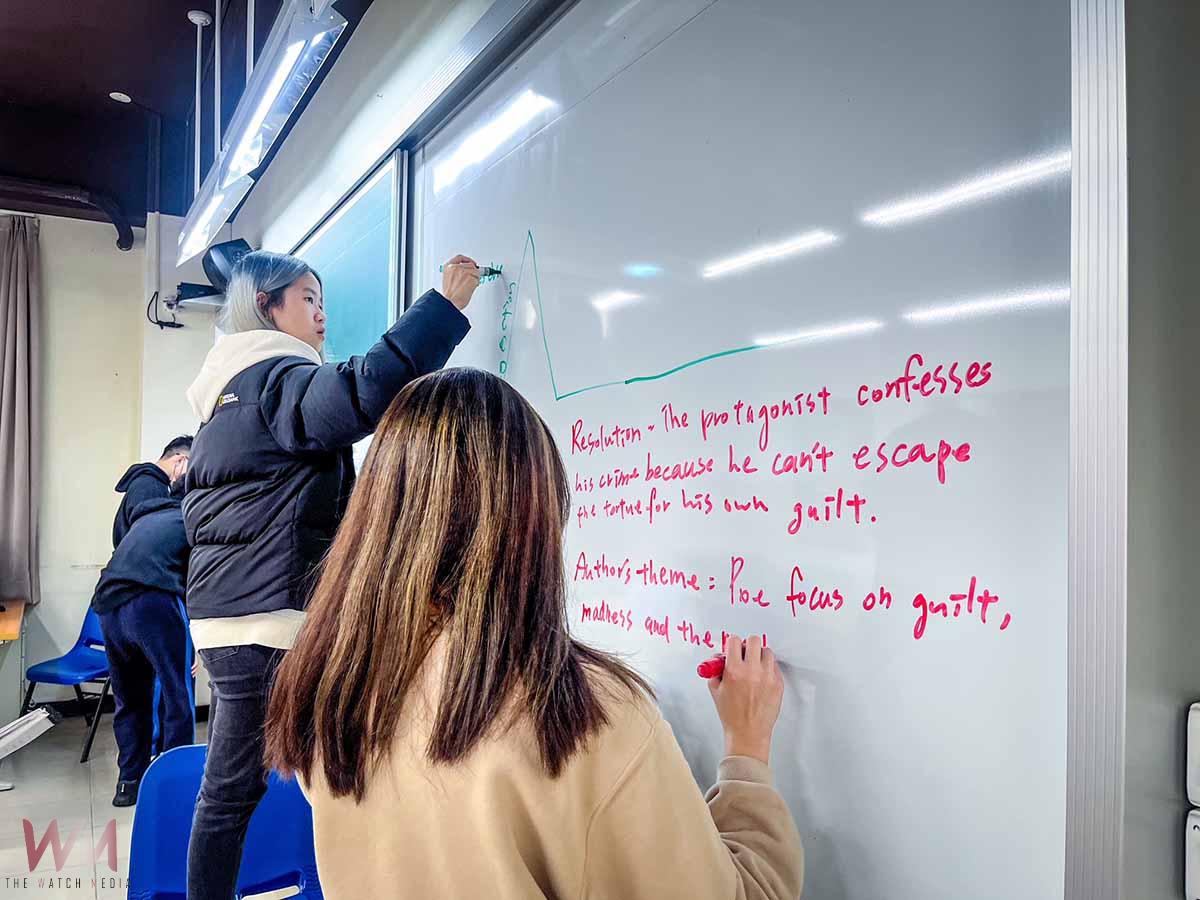 Resolution - The protagonist confesses
his crime because he can't escape
the tortue for his own guilt.
Author's theme : Poe focus on guilt,
madness and the
WM
THE WATCH MEDIA